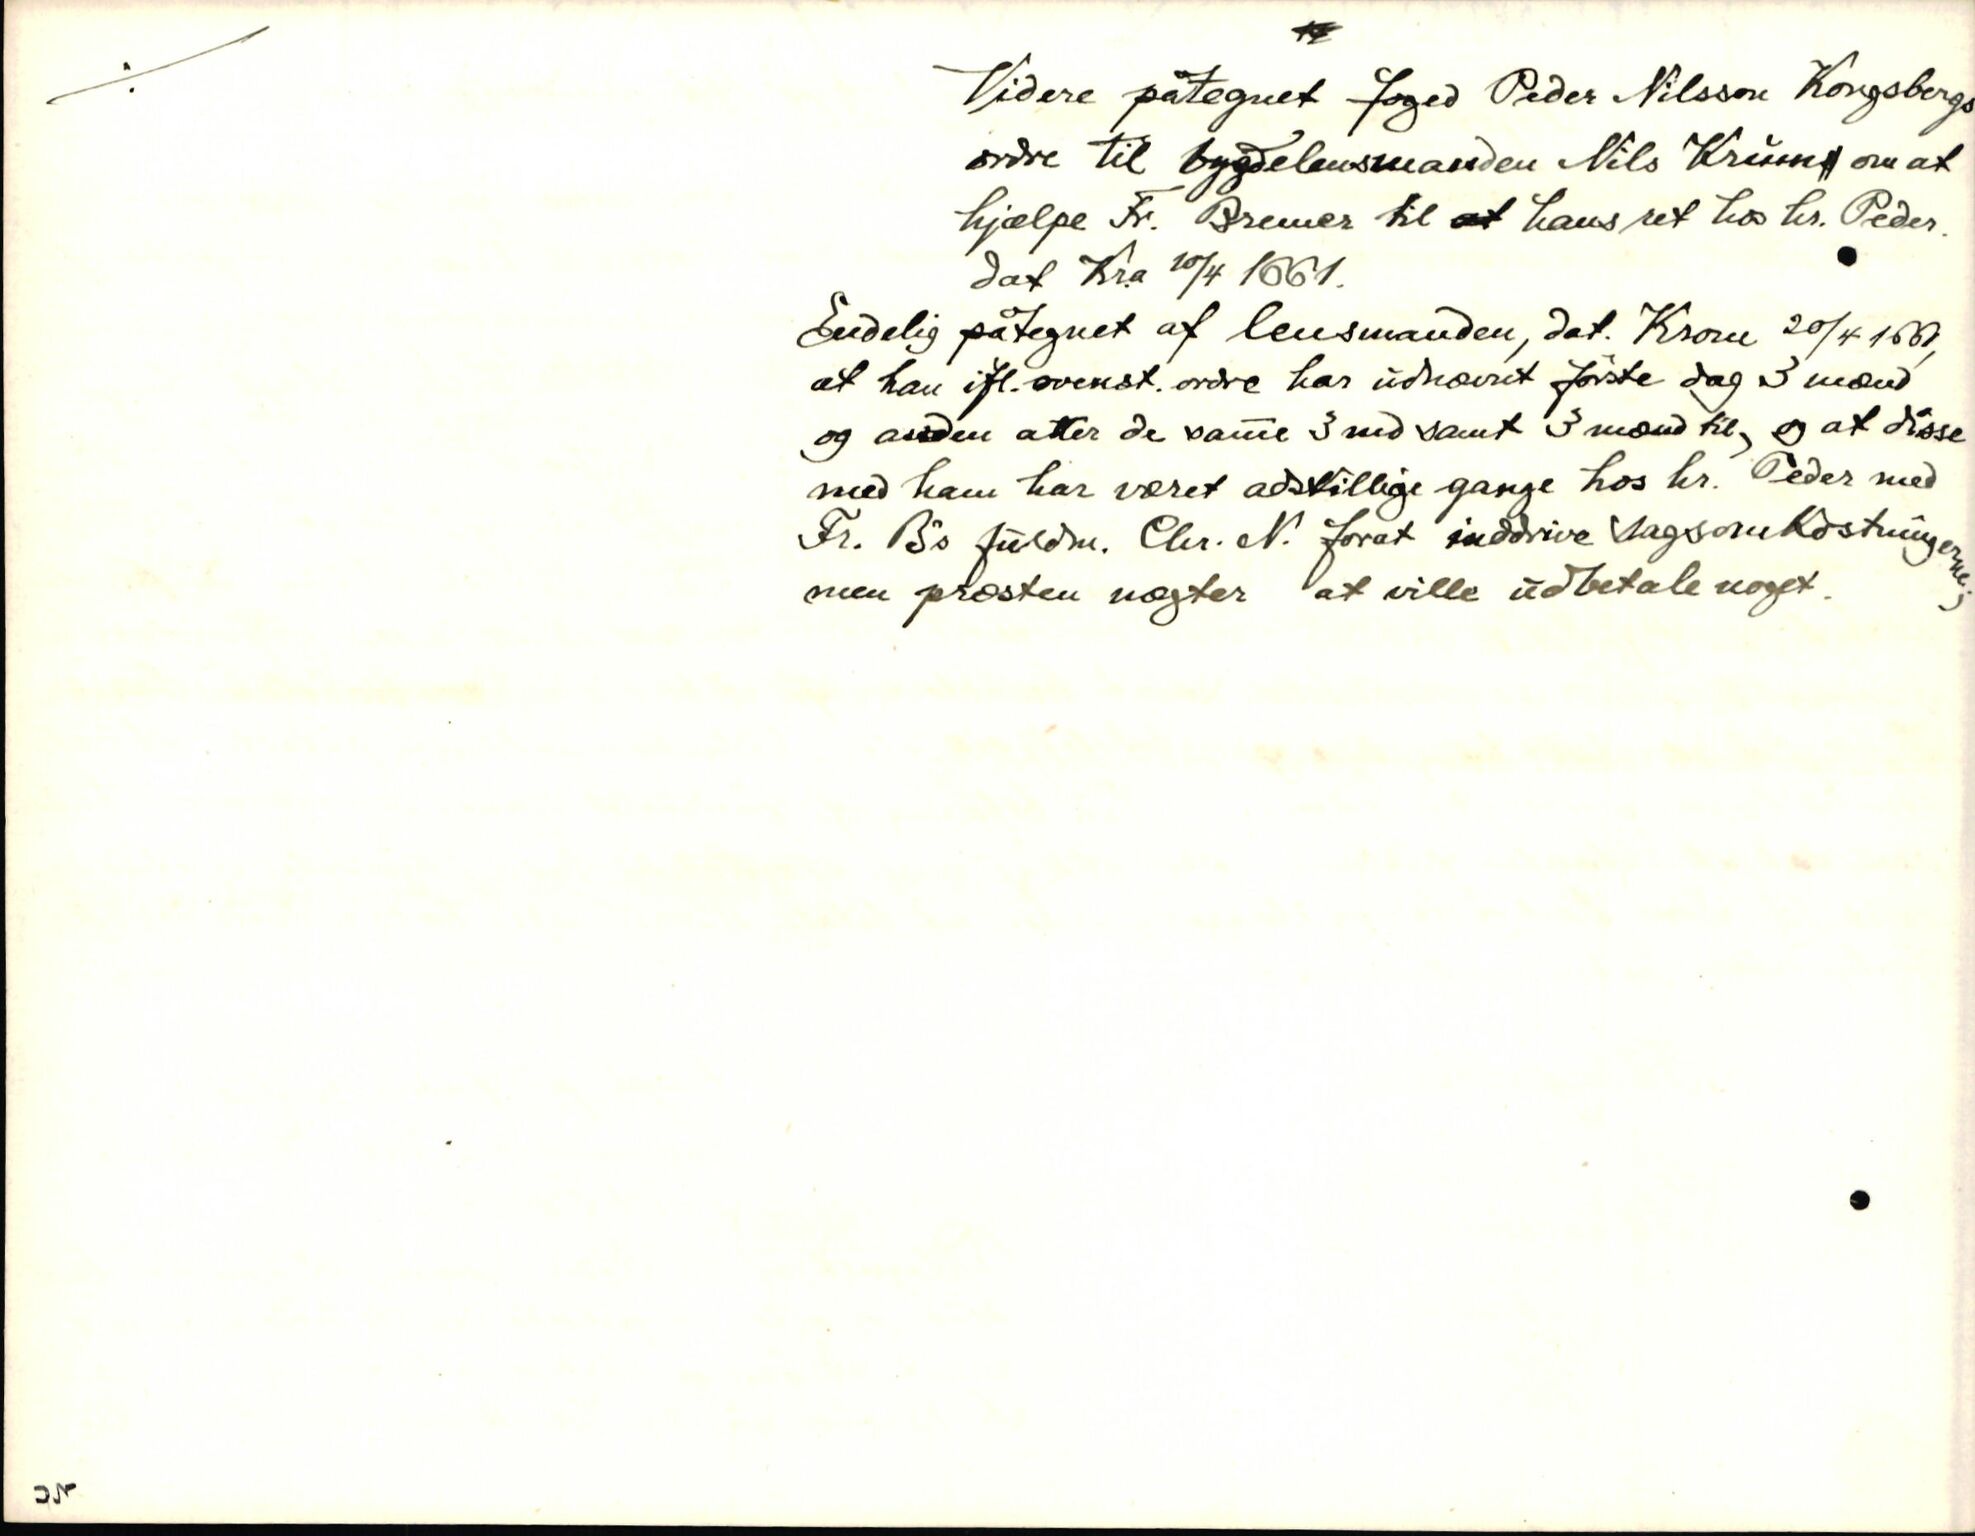 Videre påtegnet foged Peder Nilsson Kongsbergs
ordre til bygdelensmanden Nils Krum om at
hjælpe Fr. Bremer til hans ret hos hr. Peder.
dat Kr.a 10/4 1661.
Endelig påtegnet af lensmanden, dat. Krom 20/4 1661,
at han ifl. ovenst. ordre har udnævnt første dag 3 mænd
og anden atter de samme 3 md samt 3 mænd til, og at disse
med ham har været adskillige gange hos hr. Peder med
Fr. B's fuldm. Chr. N. forat inddrive sagsomkostningerne;
men præsten nægter at ville udbetale noget.